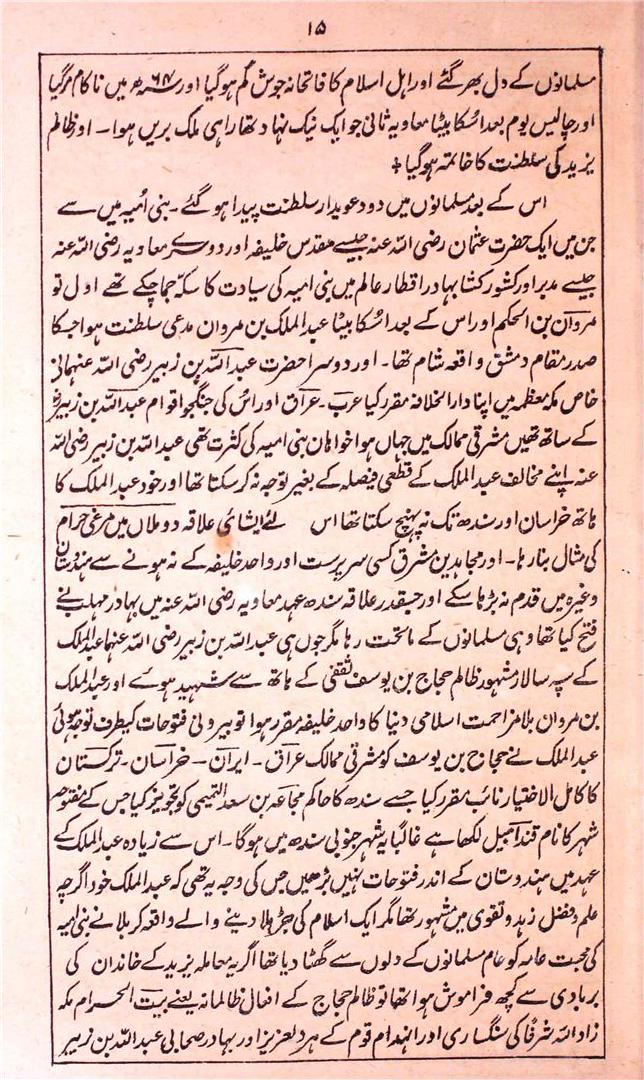 ۱۵
مسلمانوں کے دل بھر گئے اور اہل اسلام کا فاتحانہ جوش گم ہو گیا اور ۶۴ھ میں ناکام مر گیا
اور چالیس یوم بعد اُسکا بیٹا معاویہ ثانی جو ایک نیک نہاد تھا راہی ملک بریں ہوا۔ اور ظالم
یزید کی سلطنت کا خاتمہ ہو گیا
اس کے بعد مسلمانوں میں دو دعویدار سلطنت پیدا ہو گئے۔ بنی اُمیہ میں سے
جن میں ایک حضرت عثمان رضی اللہ عنہ جیسے مقدس خلیفہ اور دوسرے معاویہ رضی اللہ عنہ
جیسے مدبر اور کشور کشا بہادر اقطار عالم میں بنی امیہ کی سیادت کا سکّہ جما چکے تھے اول تو
مروان بن الحکم اور اس کے بعد اُسکا بیٹا عبدالملک بن مروان مدعی سلطنت ہوا جسکا
صدر مقام دمشق واقعہ شام تھا۔ اور دوسرا حضرت عبداللہ بن زبیر رضی اللہ عنہما نی
خاص مکہ معظمہ میں اپنا دارالخلافہ مقرر کیا عرب۔ عراق اور اُس کی جنگجو اقوام عبداللہ بن زبیرؓ
کے ساتھ تھیں مشرقی ممالک میں جہاں ہوا خواہان بنی امیہ کی کثرت تھی عبداللہ بن زبیر رضی اللہ
عنہ اپنے مخالف عبدالملک کے قطعی فیصلہ کے بغیر توجہ نہ کر سکتا تھا اور خود عبدالملک کا
ہاتھ خراسان اور سندھ تک نہ پہنچ سکتا تھا اس لئے ایشائی علاقہ دو ملاں میں مرغی حرام
کی مثال بنا رہا۔ اور مجاہدین مشرق کسی سرپرست اور واحد خلیفہ کے نہ ہونے سے ہندوستان
وغیرہ میں قدم نہ بڑہا سکے اور جسقدر علاقہ سندھ عہد معاویہ رضی اللہ عنہ میں بہادر مہلب نے
فتح کیا تھا وہی مسلمانوں کے ماتحت رہا مگر جوں ہی عبداللہ بن زبیر رضی اللہ عنہما عبدالملک
کے سپہ سالار مشہور ظالم حجاج بن یوسف ثقفی کے ہاتھ سے شہید ہوئے اور عبدالملک
بن مروان بلا مزاحمت اسلامی دنیا کا واحد خلیفہ مقرر ہوا تو بیرونی فتوحات کیطرف توجہ ہوئی
عبدالملک نے حجاج بن یوسف کو مشرقی ممالک عراق۔ ایران۔ خراسان۔ ترکستان
کا کامل الاختیار نائب مقرر کیا جسے سندھ کا حاکم مجاعہ بن سعد التمیمی کو تجویز کیا جس کے مفتوحہ
شہر کا نام قندابیل لکھا ہے غالباً یہ شہر جنوبی سندھ میں ہوگا۔ اس سے زیادہ عبدالملک کے
عہد میں ہندوستان کے اندر فتوحات نہیں بڑھیں جس کی وجہ یہ تھی کہ عبدالملک خود اگرچہ
علم و فضل زہد و تقوی میں مشہور تھا مگر ایک اسلام کی جڑ ہلا دینے والے واقعہ کربلا نے بنی امیہ
کی محبت عامہ کو عام مسلمانوں کے دلوں سے گھٹا دیا تھا اگر یہ معاملہ یزید کے خاندان کی
بربادی سے کچھ فراموش ہوا تھا تو ظالم حجاج کے افعال ظالمانہ یعنے بیت الحرام مکہ
زاد اللہ شرفاً کی سنگساری اور انہدام قوم کے ہر دلعزیز اور بہادر صحابی عبداللہ بن زبیر